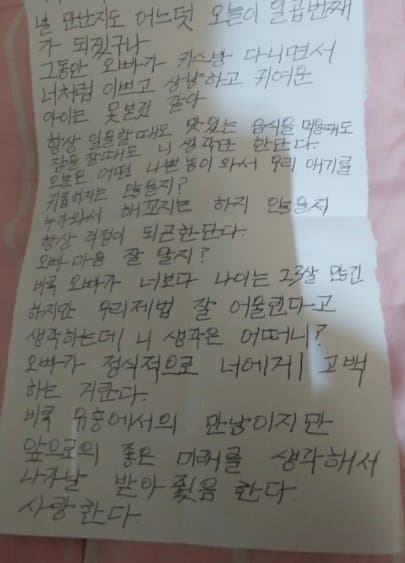 널 만난지도 어느덧 오늘이 일곱번째
가 되겠구나
그동안 오빠가 키스방 다니면서
너처럼 이쁘고 상냥하고 귀여운
아이는 못본것 같아
항상 일을할때도 맛있는 음식을 먹을때도
잠을 잘때도 니 생각만 한단다.
오늘은 어떤 나쁜놈이 와서 우리 애기를
괴롭히지는 않을지?
누가와서 해꼬지는 하지 않을지
항상 걱정이 되곤한단다.
오빠 마음 잘 알지?
비록 오빠가 너보다 나이는 23살 많긴
하지만 우리제법 잘 어울린다고
생각하는데 니 생각은 어떠니?
오빠가 정식적으로 너에게 고백
하는 거란다.
비록 유흥에서의 만남이지만
앞으로의 좋은 미래를 생각해서
나자날 받아줬음 한다
사랑한다